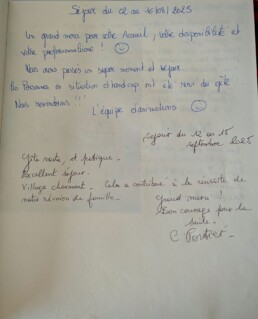 Séjour du 12 au 16/09/2025
Un grand merci pour votre Accueil, votre disponibilité et
votre professionnalisme !
Nous avons passés un super moment et séjour
Les Personnes en situation d'handicap ont été ravis du gîte
Nous reviendrons !!!
L'équipe d'animations
Séjour du 12 au 15
septembre 2025
Gîte vaste, et pratique.
Excellent séjour.
Village charmant. Cela a contribué à la réussite de
notre réunion de famille.
Grand merci !
Bon courage pour la
suite.